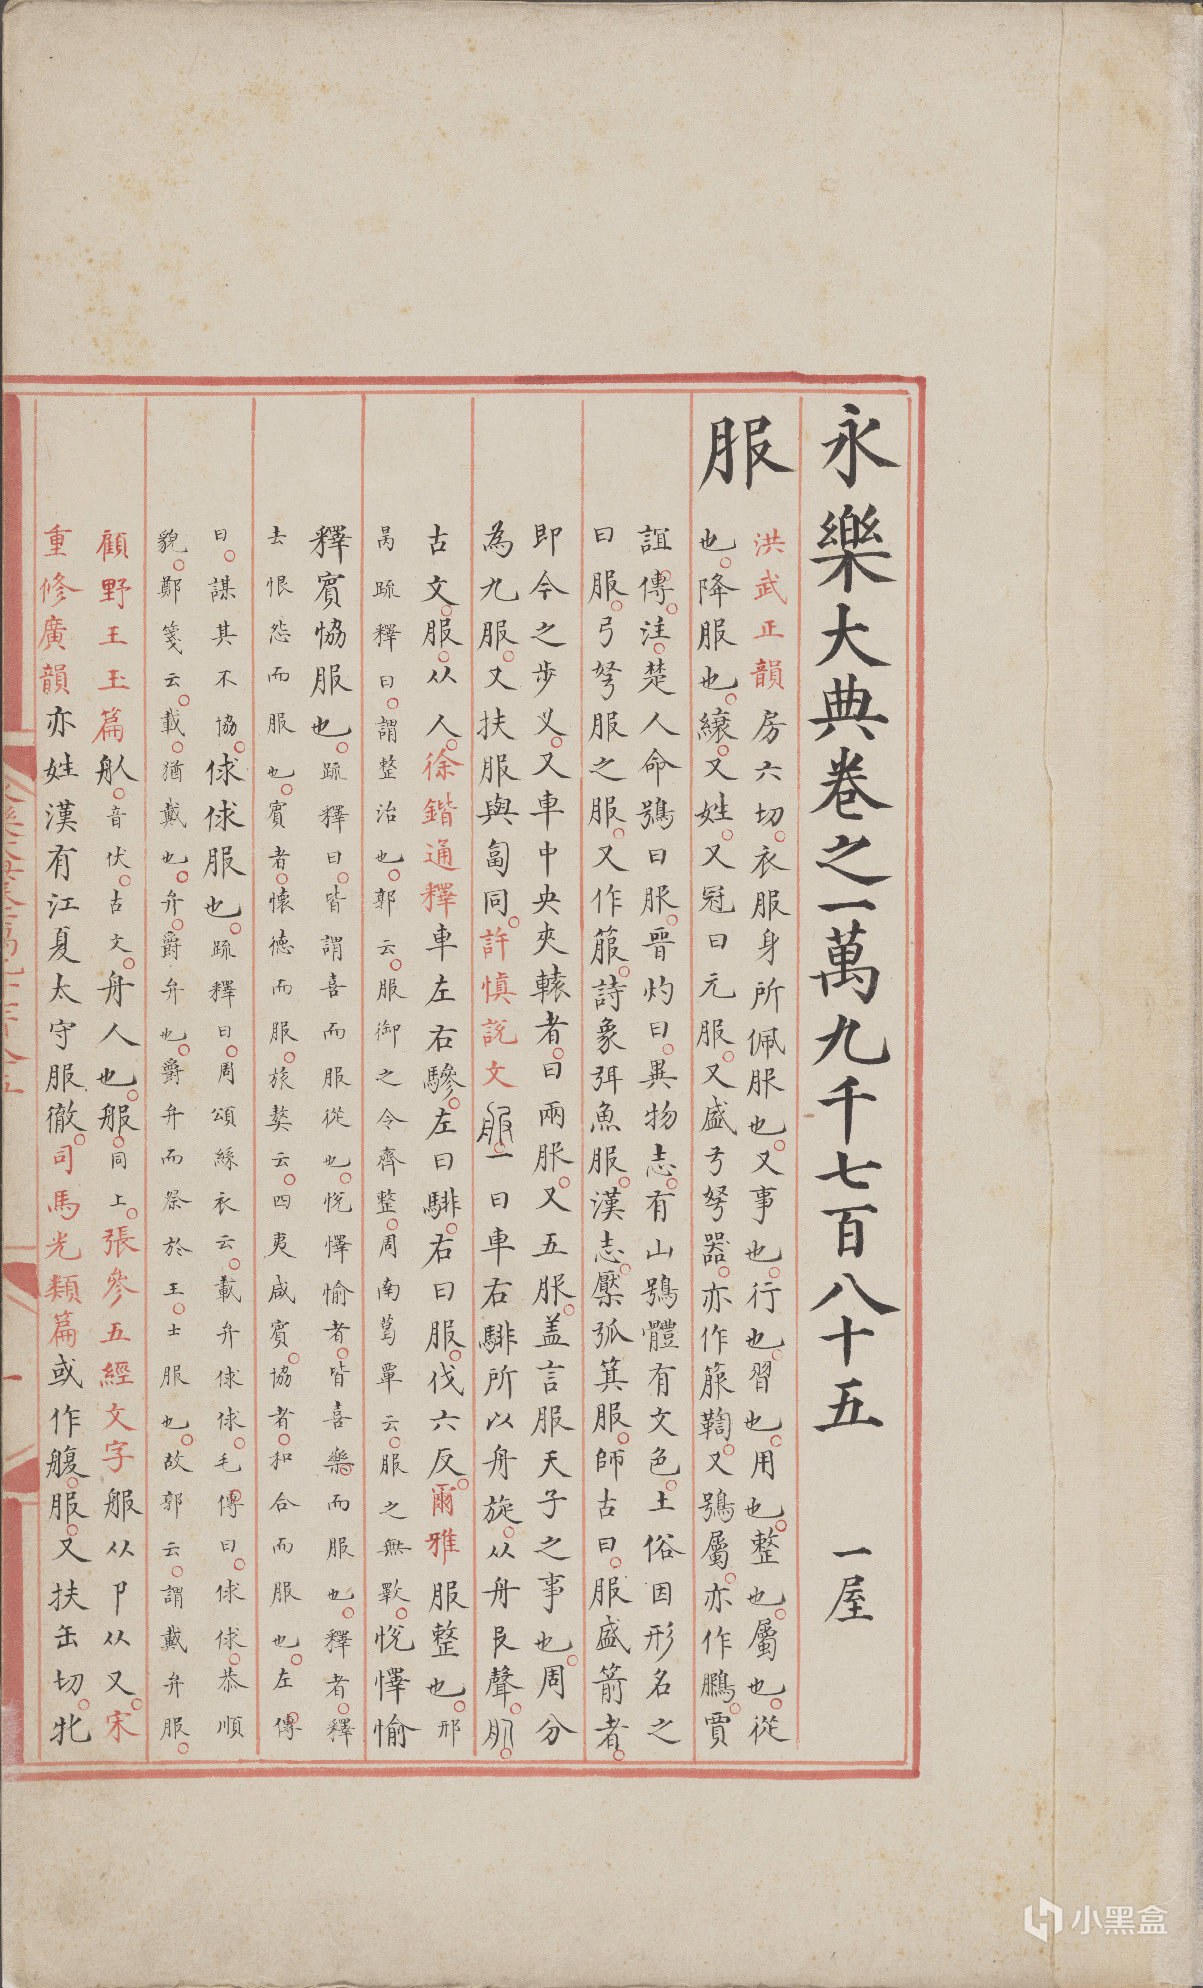 永樂大典卷之一萬九千七百八十五 一屋
服
洪武正韻房六切。衣服身所佩服也。又事也。行也。習也。用也。整也。屬也。從
也。降服也。纕。又姓。又冠曰元服。又盛弓弩器。亦作箙鞫。又鵶屬。亦作鵩。賈
誼傳。注。楚人命鴞曰服。晋灼曰。異物志。有山鴞體有文色。土俗因形名之
曰服。弓弩服之服。又作箙。詩象弭魚服。漢志。檿弧箕服。師古曰。服盛箭者。
即今之步叉。又車中央夾轅者。曰兩服。又五服。盖言服天子之事也。周分
為九服。又扶服與匐同。許慎說文服。一曰車右騑所以舟旋。从舟𠬝聲。
古文。服。从人。徐鍇通釋車左右驂。左曰騑。右曰服。伐六反。爾雅服整也。邢
昺疏釋曰。謂整治也。郭云。服御之令齊整。周南葛覃云。服之無斁。悅懌愉
釋賓協服也。疏釋曰。皆謂喜而服從也。悅懌愉者。皆喜樂而服也。釋者。釋
去恨怨而服也。賓者。懷德而服。旅獒云。四夷咸賓。協者。和合而服也。左傳
曰。謀其不協。俅俅服也。疏釋曰。周頌絲衣云。載弁俅俅。毛傳曰。俅俅。恭順
貌。鄭箋云。載。猶戴也。弁。爵弁也。爵弁而祭於王。士服也。故郭云。謂戴弁服。
顧野王玉篇舧。音伏。古文。舟人也。服。同上。張參五經文字服从卩从又。宋
重修廣韻亦姓漢有江夏太守服徹。司馬光類篇或作䑧。服。又扶缶切。牝
小黑盒